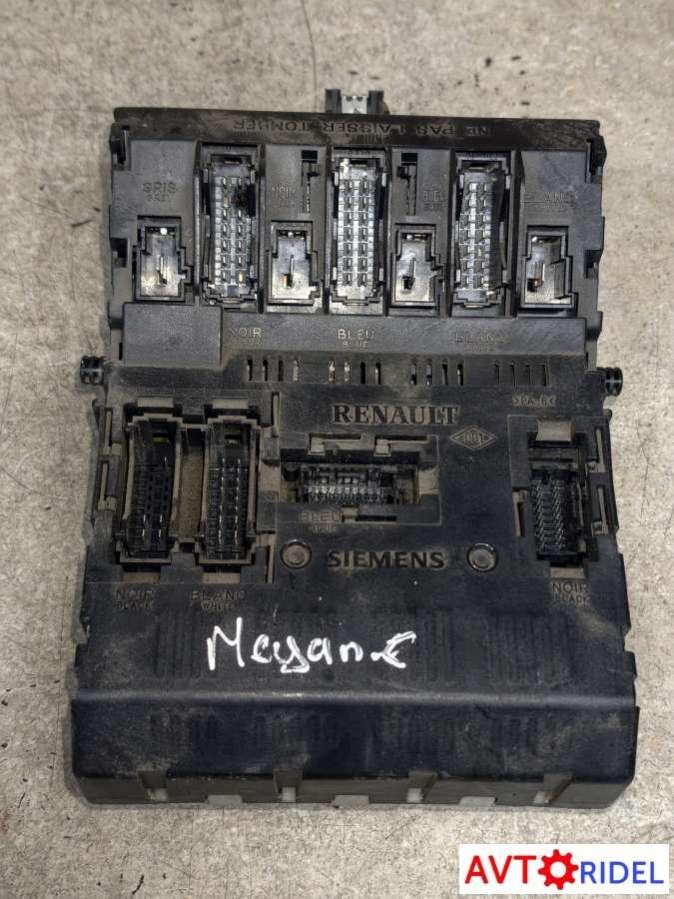 NE PAS LAISSER TOMBER
GRIS
NOIR
BLEU
BLANC
NOIR
BLEU
BLUE
BLANC
RENAULT
BLEU
SIEMENS
NOIR
BLACK
BLANC
WHITE
NOIR
BLACK
Megane
AVTORIDEL